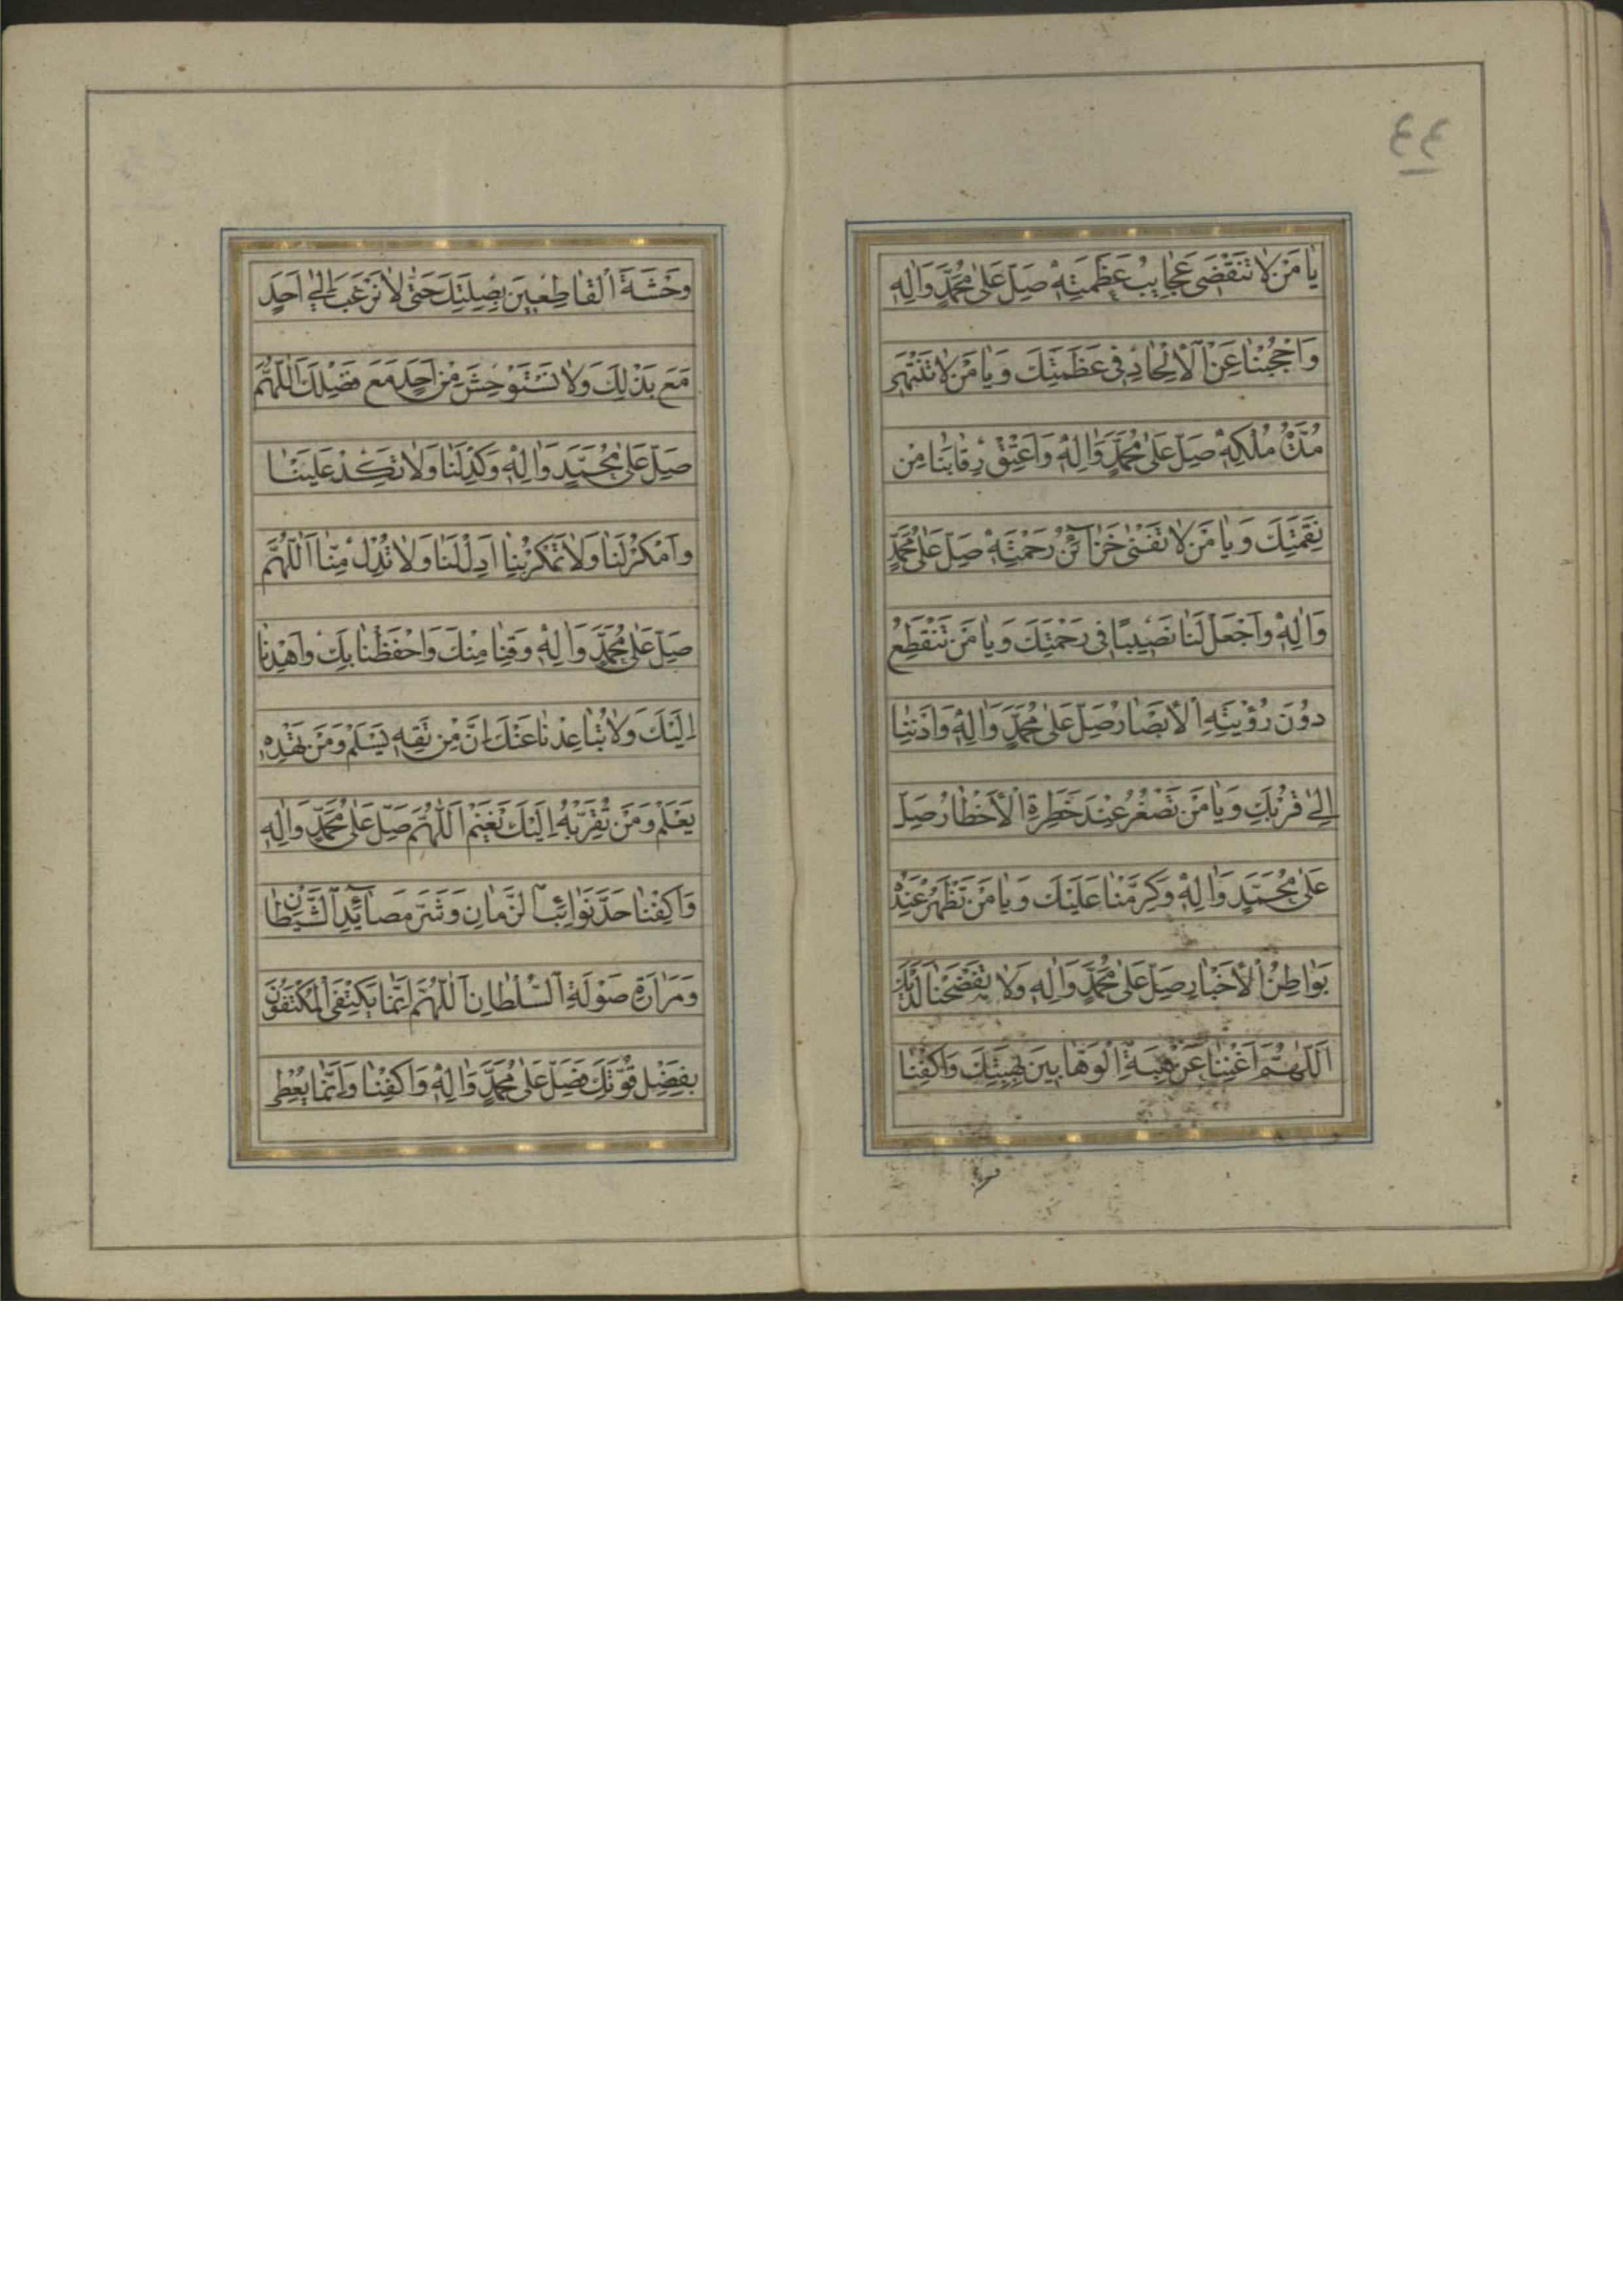 ٤٤
يٰا مَنْ لاٰ تَنْقَضى عَجٰايِبُ عَظَمَتِهِ صَلِّ عَلىٰ مُحَمَّدٍ وَاٰلِهِ
وَاحْجُبْنٰا عَنِ الْاِلْحٰادِ فى عَظَمَتِكَ وَيٰا مَنْ لاٰ تَنْتَهى
مُدَّةُ مُلْكِهِ صَلِّ عَلىٰ مُحَمَّدٍ وَاٰلِهِ وَاَعْتِقْ رِقٰابَنٰا مِن
نِقَمَتِكَ وَيٰا مَنْ لاٰ تَفْنىٰ خَزٰآئِنُ رَحْمَتِهِ صَلِّ عَلىٰ مُحَمَّدٍ
وَاٰلِهِ وَاجْعَلْ لَنٰا نَصيبًا فى رَحْمَتِكَ وَيٰا مَنْ تَنْقَطِعُ
دوُنَ رُؤْيَتِهِ الْاَبْصٰارُ صَلِّ عَلىٰ مُحَمَّدٍ وَاٰلِهِ وَاَدْنِنٰا
اِلىٰ قُرْبِكَ وَيٰا مَنْ تَصْغُرُ عِنْدَ خَطَرِهِ الْاَخْطٰارُ صَلِّ
عَلىٰ مُحَمَّدٍ وَاٰلِهِ وَكَرِّمْنٰا عَلَيْكَ وَيٰا مَنْ تَظْهَرُ عِنْدَهُ
بَوٰاطِنُ الْاَخْبٰارِ صَلِّ عَلىٰ مُحَمَّدٍ وَاٰلِهِ وَلاٰ تَفْضَحْنٰا لَدَيْكَ
اَللّٰهُمَّ اَغْنِنٰا عَنْ هِبَةِ الْوَهّٰابينَ بِهِبَتِكَ وَاكْفِنٰا
وَحْشَةَ الْقٰاطِعينَ بِصِلَتِكَ حَتّىٰ لاٰ نَرْغَبَ اِلىٰ اَحَدٍ
مَعَ بَذْلِكَ وَلاٰ نَسْتَوْحِشَ مِنْ اَحَدٍ مَعَ فَضْلِكَ اَللّٰهُمَّ
صَلِّ عَلىٰ مُحَمَّدٍ وَاٰلِهِ وَكِدْ لَنٰا وَلاٰ تَكِدْ عَلَيْنٰا
وَامْكُرْ لَنٰا وَلاٰ تَمْكُرْ بِنٰا اَدِلْ لَنٰا وَلاٰ تُدِلْ مِنّٰا اَللّٰهُمَّ
صَلِّ عَلىٰ مُحَمَّدٍ وَاٰلِهِ وَقِنٰا مِنْكَ وَاحْفَظْنٰا بِكَ وَاهْدِنٰا
اِلَيْكَ وَلاٰ تُبٰاعِدْنٰا عَنْكَ اِنَّ مَنْ تَقِهِ يَسْلَمْ وَمَنْ تَهْدِهِ
يَعْلَمْ وَمَنْ تُقَرِّبْهُ اِلَيْكَ يَغْنَمْ اَللّٰهُمَّ صَلِّ عَلىٰ مُحَمَّدٍ وَاٰلِهِ
وَاكْفِنٰا حَدَّ نَوٰائِبِ الزَّمٰانِ وَشَرَّ مَصٰآئِدِ الشَّيْطٰانِ
وَمَرٰارَةَ صَوْلَةِ السُّلْطٰانِ اَللّٰهُمَّ اِنَّمٰا يَكْتَفِى الْمُكْتَفوُنَ
بِفَضْلِ قُوَّتِكَ فَصَلِّ عَلىٰ مُحَمَّدٍ وَاٰلِهِ وَاكْفِنٰا وَاِنَّمٰا يُعْطِى